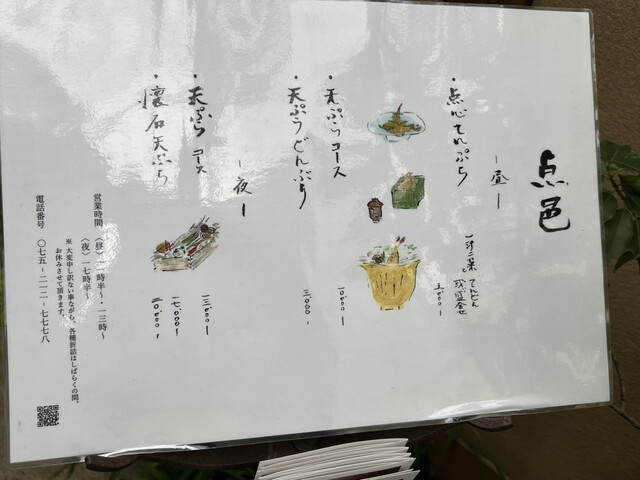 点邑
ー昼ー
・点心てんぷら
一汁二菜 てんどん
・天ぷらコース
一〇、〇〇〇ー
・天ぷらどんぶり
三、〇〇〇ー
ー夜ー
・天ぷらコース
一三、〇〇〇ー
一七、〇〇〇ー
・懐石天ぷら
二〇、〇〇〇ー
営業時間 〈昼〉一一時半~一三時~
〈夜〉一七時半~
※ 大変申し訳ない事ながら、各種折詰はしばらくの間、
お休みさせて頂きます。
電話番号 〇七五-二一二-七七七八